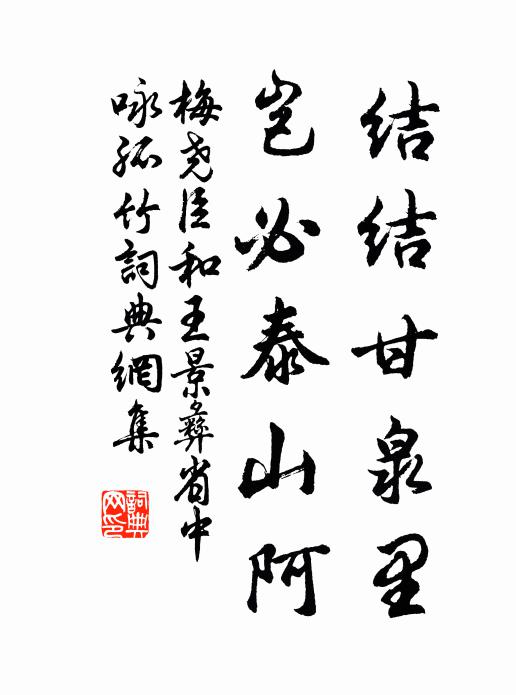 结结甘泉里
岂必泰山阿
梅尧臣和王景彝省中
咏孤竹詞典網集
詞典网印